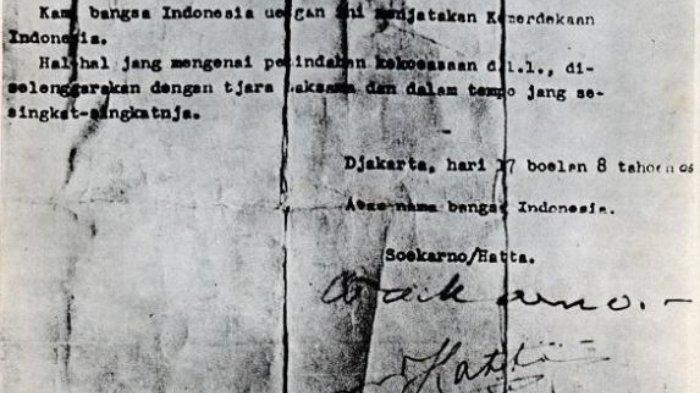 Kami bangsa Indonesia dengan ini menjatakan Kemerdekaan
Indonesia.
Hal-hal jang mengenai pemindahan kekoeasaan d.l.l., di-
selenggarakan dengan tjara saksama dan dalam tempo jang se-
singkat-singkatnja.
Djakarta, hari 17 boelan 8 tahoen 05
Atas nama bangsa Indonesia.
Soekarno/Hatta.
Soekarno.-
Hatta